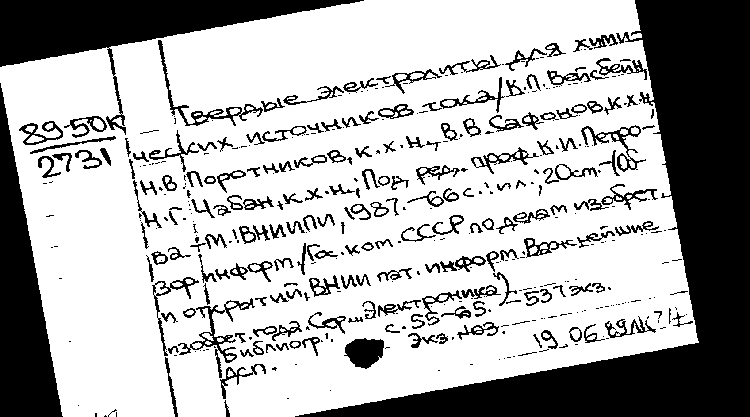 89-50К
2731
Твердые электролиты для хими-
ческих источников тока/К.П. Вейсбейн,
Н.В. Поротников, к.х.н., В.В. Сафонов, к.х.н.,
Н.Г. Чабан, к.х.н.; Под ред. проф. К.И. Петро-
ва.-М.:ВНИИПИ, 1987.-66 с.: ил.; 20 cm.-(Об-
зор. информ./Гос. ком. СССР по делам изобрет.
и открытий, ВНИИ пат. информ. Важнейшие
изобрет. года. Сер. „Электроника")
Библиогр.: с. 55-65. -537 экз.
ДСП. Экз. №3.
19 06 89